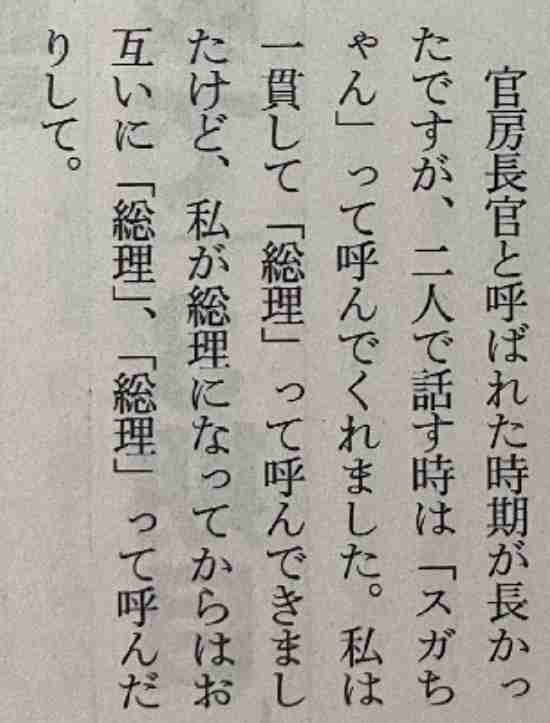 官房長官と呼ばれた時期が長かっ
たですが、二人で話す時は「スガち
ゃん」って呼んでくれました。私は
一貫して「総理」って呼んできまし
たけど、私が総理になってからはお
互いに「総理」、「総理」って呼んだ
りして。